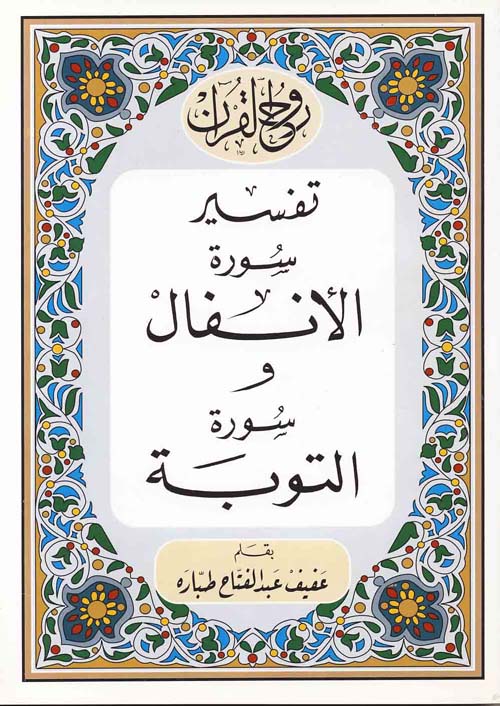 روح القرآن
تفسير
سورة
الأنفال
و
سورة
التوبة
بقلم
عفيف عبد الفتاح طباره